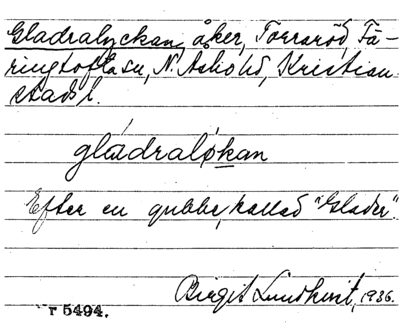 Gladralyckan, åker, Torraröd, Fä-
ringtofta sn, N. Åsbo hd, Kristian-
stads l.
gládralø̀kan
Efter en gubbe, kallad "Glader".
Birgit Lundkvist, 1936.
r 5494.